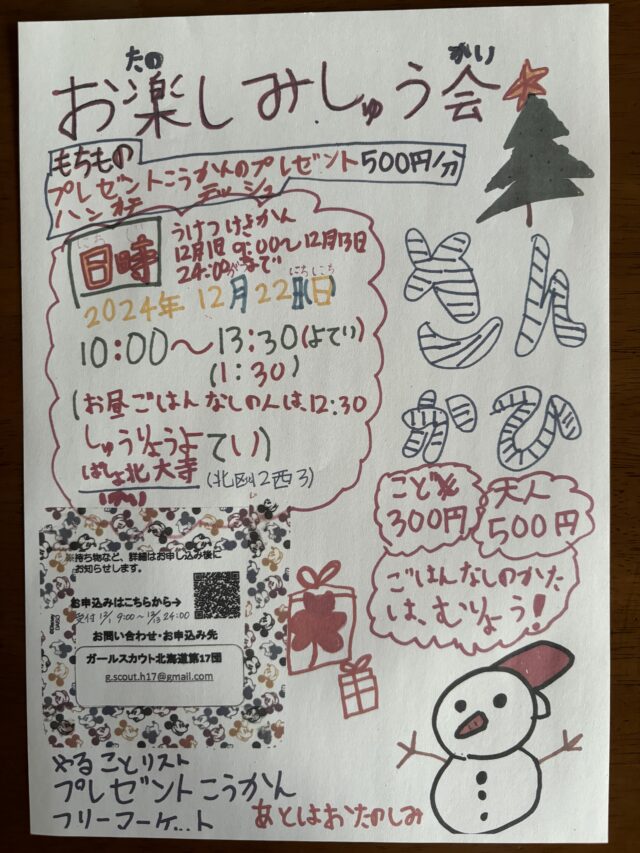 たの
がい
お楽しみしゅう会
もちもの
プレゼントこうかんのプレゼント500円/分
ハンカチ ティッシュ
にち
日時
うけつけきかん
12月1日 9:00〜12月13日
24:00まで
にちようび
2024年12月22日(日)
10:00〜13:30(よてい)
(1:30)
(お昼ごはんなしの人は、12:30
しゅうりょうよてい)
ばしょ北大寺
(北32西3)
さんかひ
こども
300円
大人
500円
ごはんなしのかた
は、むりょう!
※持ち物など、詳細はお申し込み後に
お知らせします。
お申込みはこちらから→
受付 12/1 9:00〜12/13 24:00
お問い合わせ・お申込み先
ガールスカウト北海道第17団
g.scout.h17@gmail.com
©Disney
やることリスト
プレゼントこうかん
フリーマーケット
あとはおたのしみ